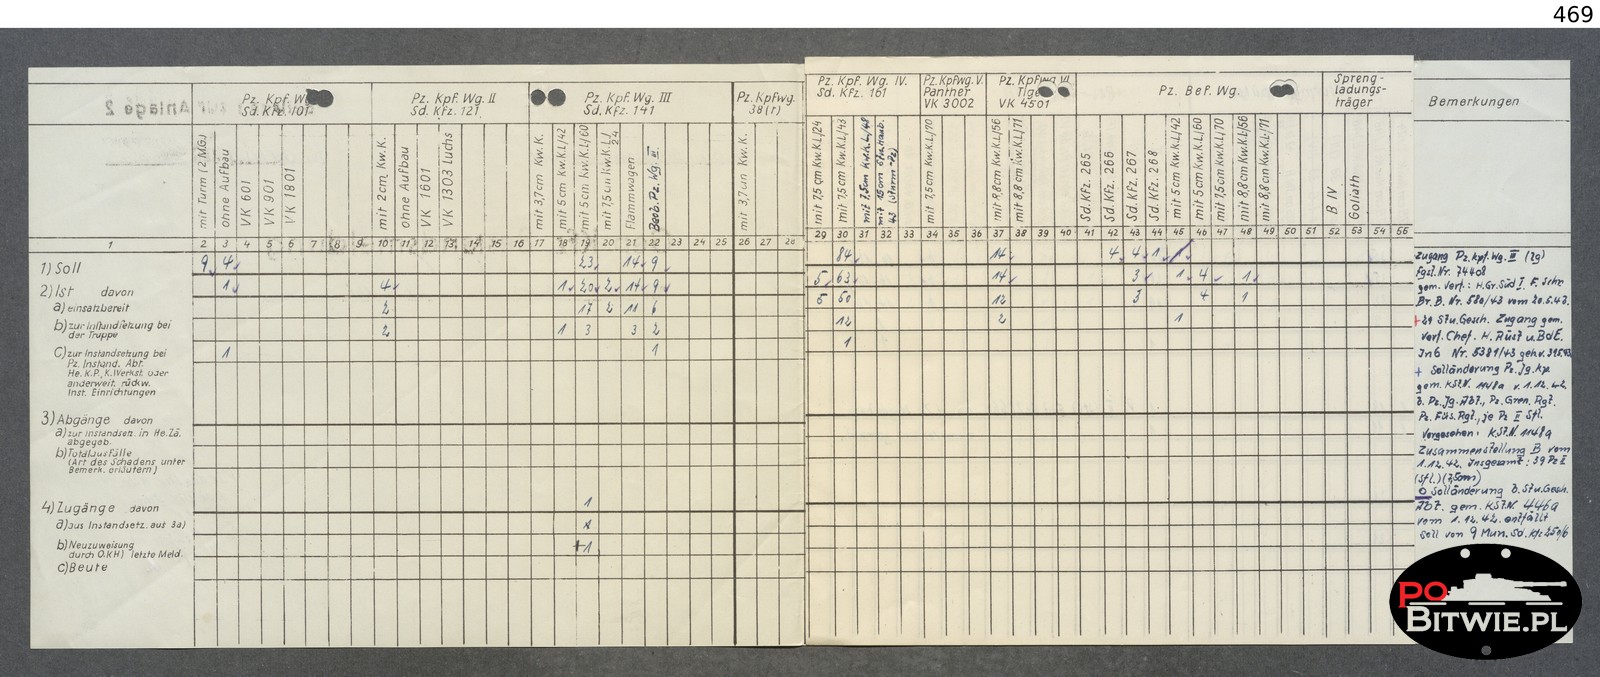 469
Anlage 2
Pz. Kpf. W
Sd. Kfz. 101
Pz. Kpf. Wg. II
Sd. Kfz. 121
Pz. Kpf. Wg. III
Sd. Kfz. 141
Pz. Kpfwg.
38(t)
Pz. Kpf. Wg. IV.
Sd. Kfz. 161
Pz. Kpfwg. V.
Panther
VK 3002
Pz. Kpfwg VI
Tige
VK 4501
Pz. Bef. Wg.
Spreng-
ladungs-
träger
Bemerkungen
mit Turm (2 MG)
ohne Aufbau
VK 601
VK 901
VK 1801
mit 2 cm. Kw. K.
ohne Aufbau
VK 1601
VK 1303 Luchs
mit 3,7 cm Kw. K.
mit 5 cm Kw.K.L/42
mit 5 cm Kw.K.L/60
mit 7,5 cm Kw.K.L/24
Flammwagen
Beob. Pz. Wg. III
mit 3,7 cm Kw. K.
mit 7,5 cm Kw.K.L/24
mit 7,5 cm Kw.K.L/43
mit 7,5 cm Kw.K.L/48
mit 15 cm Stu.haub.
43 (Sturm-Pz)
mit 7,5 cm Kw.K.L/70
mit 8,8 cm Kw.K.L/56
mit 8,8 cm Kw.K.L/71
Sd. Kfz. 265
Sd. Kfz. 266
Sd. Kfz. 267
Sd. Kfz. 268
mit 5 cm Kw.K.L/42
mit 5 cm Kw.K.L/60
mit 7,5 cm Kw.K.L/70
mit 8,8 cm Kw.K.L/56
mit 8,8 cm Kw.K.L/71
B IV
Goliath
1 2 3 4 5 6 7 8 9 10 11 12 13 14 15 16 17 18 19 20 21 22 23 24 25 26 27 28 29 30 31 32 33 34 35 36 37 38 39 40 41 42 43 44 45 46 47 48 49 50 51 52 53 54 55 56
1) Soll 9 4 23 14 9 84 14 4 4 1 1
2) Ist davon 1 4 1 20 2 14 9 5 63 14 3 1 4 1
a) einsatzbereit 2 17 2 11 6 5 50 12 3 4 1
b) zur Instandsetzung bei
der Truppe 2 1 3 3 2 12 2 1
c) zur Instandsetzung bei
Pz. Instand. Abt.
He. K.P., K. Werkst. oder
anderweit. rückw.
Inst. Einrichtungen 1 1 1
3) Abgänge davon
a) zur Instandsen. in He. Zä.
abgegeb.
b) Totalausfälle
(Art des Schadens unter
Bemerk. erläutern)
4) Zugänge davon 1
a) aus Instandsetz. aus 3a)
b) Neuzuweisung
durch O.K.H) letzte Meld. +1
c) Beute
Zugang Pz. Kpf. Wg. III (lg)
Fgst. Nr. 74408
gem. Verf.: H. Gr. Süd I. F. Schr.
Br. B. Nr. 580/43 vom 20.5.43.
+ 29 Stu. Gesch. Zugang gem.
Verf. Chef. H. Rüst u. BdE.
Jn6 Nr. 5381/43 geh. v.
+ Solländerung Pz. Jg. Kp
gem. KStN. 1148a v. 1.12.42
b. Pz. Jg. Abt., Pz. Gren. Rgt.
Pz. Füs. Rgt., je Pz II Sfl.
Vorgesehen. KStN. 1148a
Zusammenstellung B vom
1.12.42. Insgesamt: 39 Pz II
(Sfl.) (7,5cm)
O Solländerung b. Stu. Gesch.
Abt. gem. KStN. 446a
vom 1.12.42. entfällt
Soll von 9 Mun. Sd. Kfz 250/6
PO
BITWIE.PL